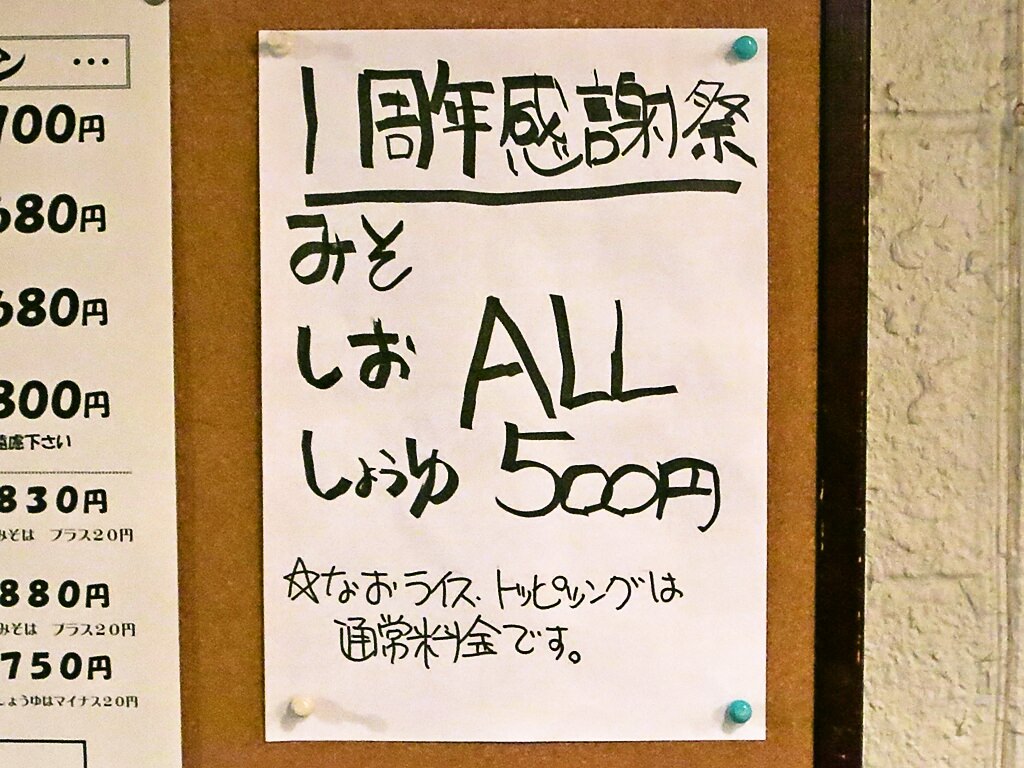 ン …
700円
680円
680円
800円
遠慮下さい
830円
みそは プラス20円
880円
みそは プラス20円
750円
しょうゆはマイナス20円
1周年感謝祭
みそ
しお
しょうゆ
ALL
500円
☆なおライス、トッピングは
通常料金です。